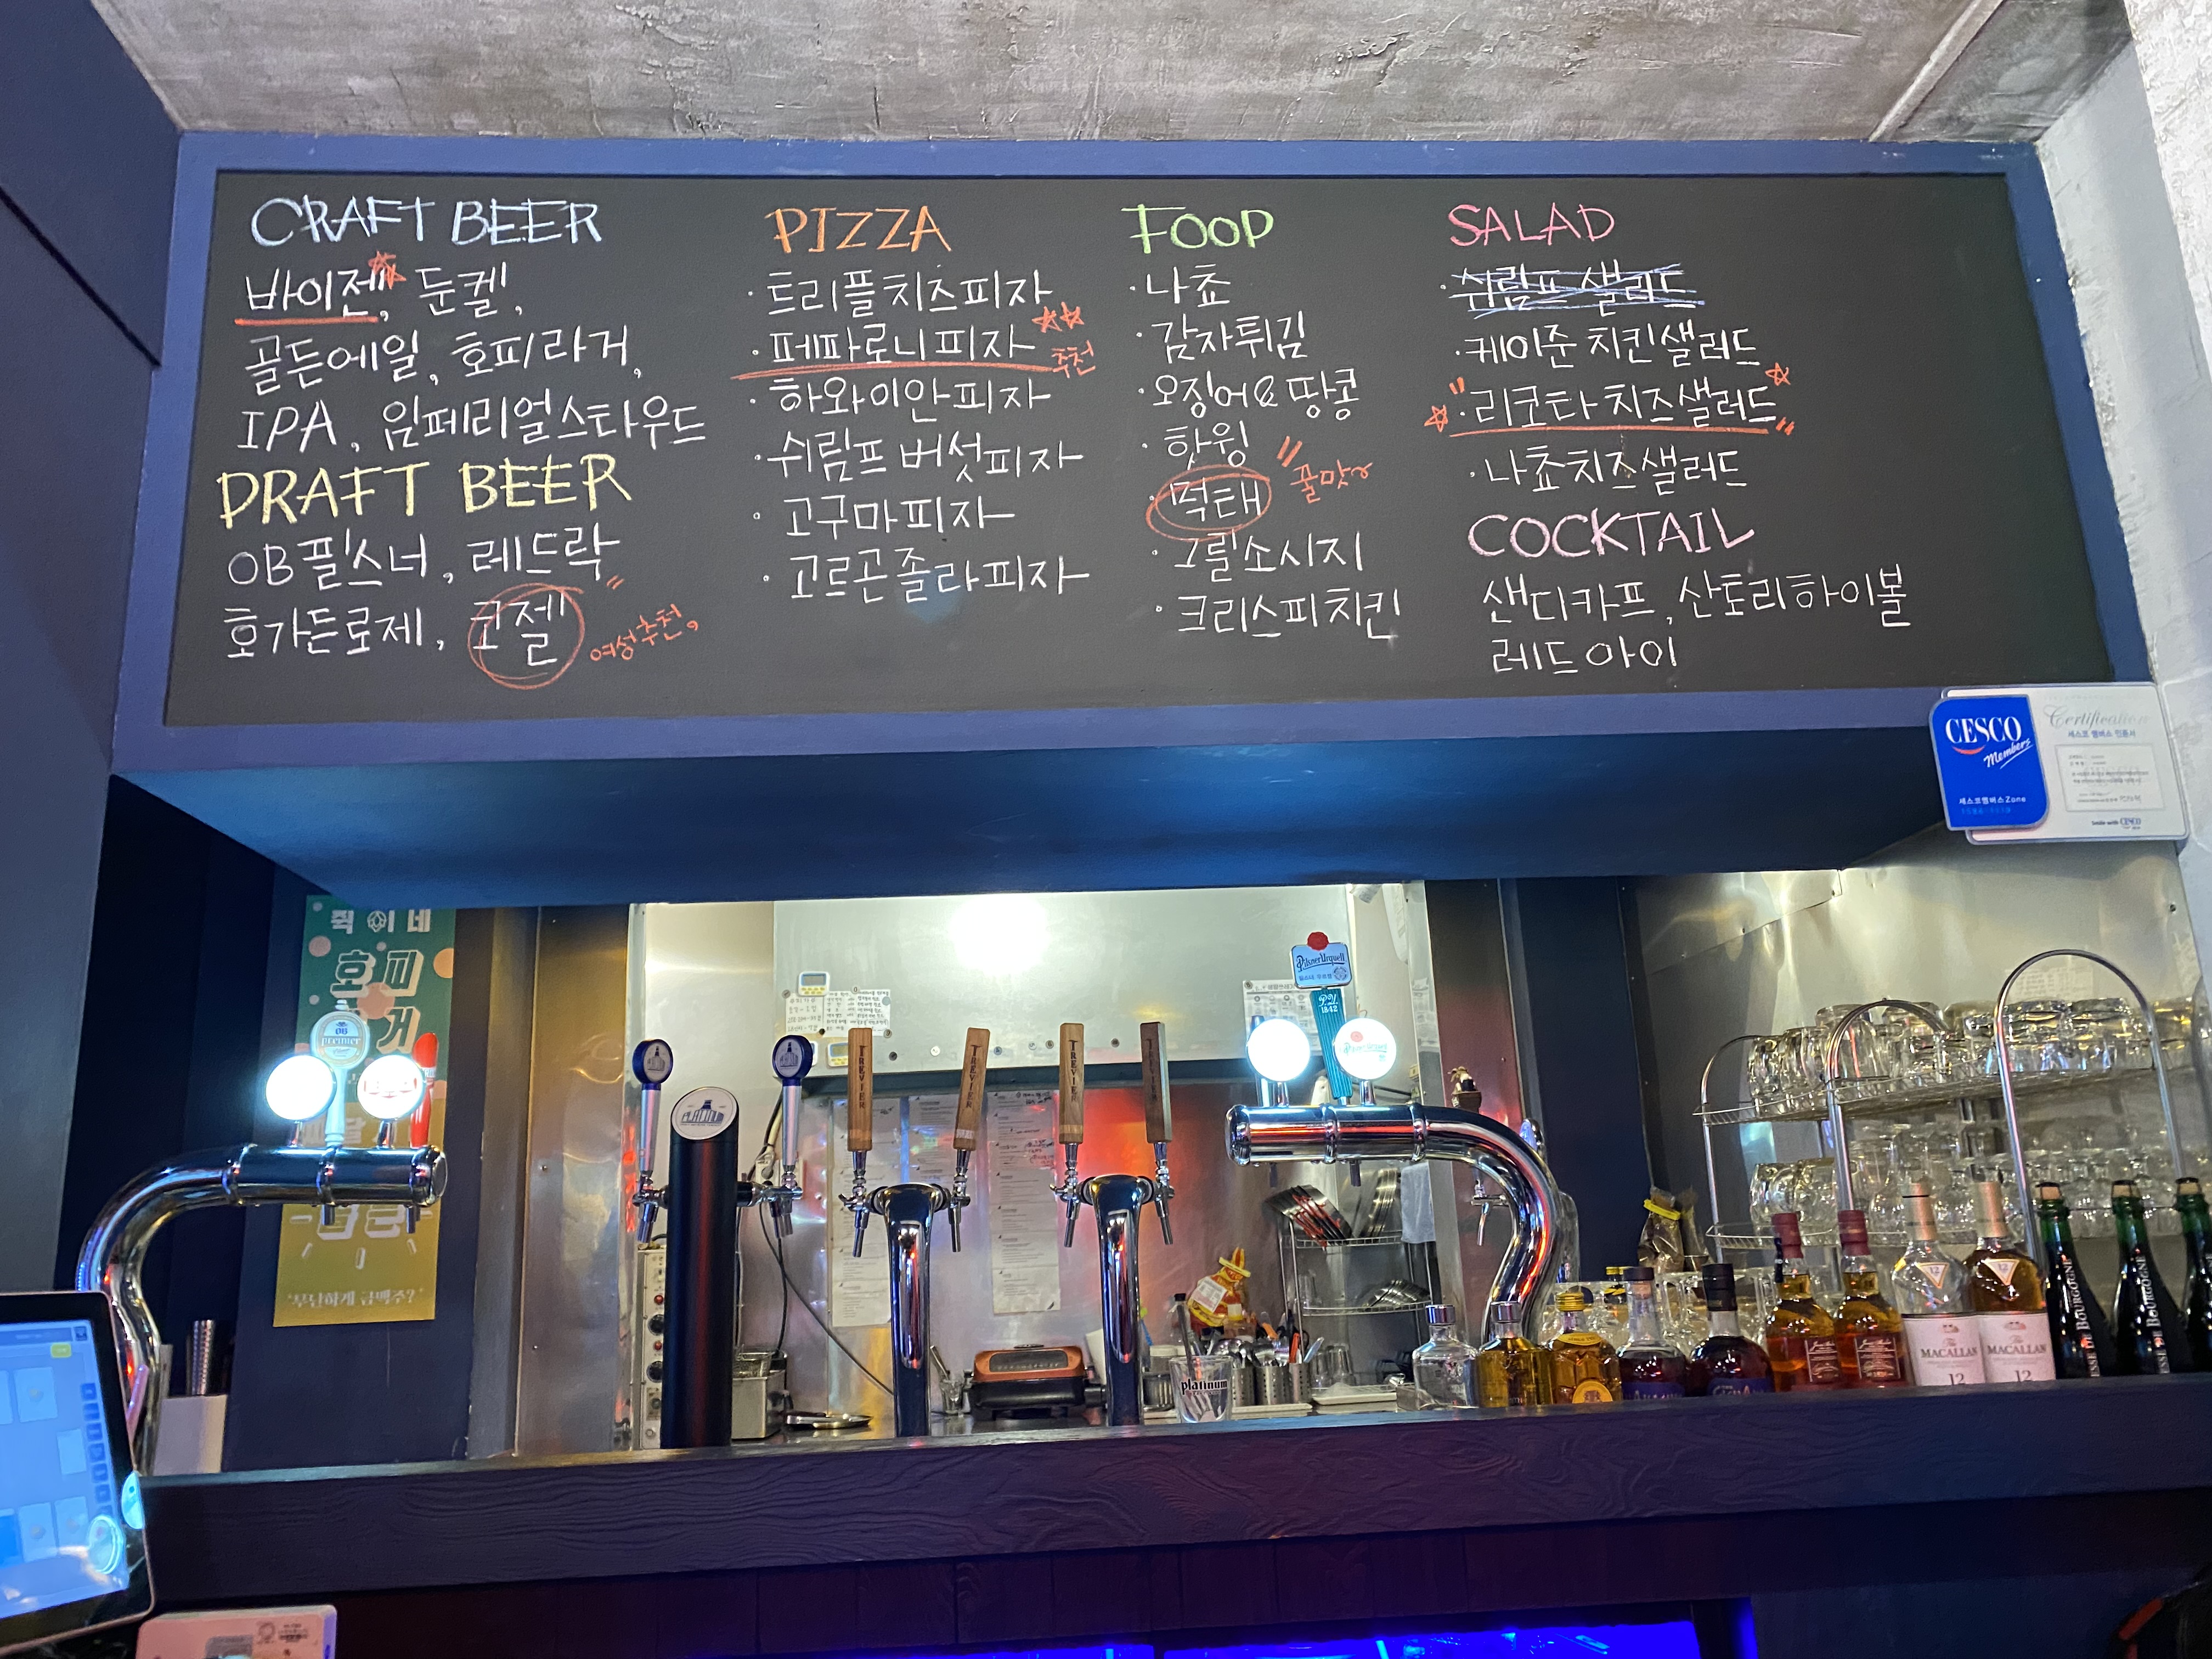 CRAFT BEER
바이젠, 둔켈,
골든에일, 호피라거,
IPA, 임페리얼스타우드
DRAFT BEER
OB필스너, 레드락
호가든로제, 코젤"
여성추천,
PIZZA
· 트리플치즈피자
· 페파로니피자
추천
· 하와이안피자
· 쉬림프 버섯피자
· 고구마피자
· 고르곤졸라피자
FOOD
· 나쵸
· 감자튀김
· 오징어&땅콩
· 핫윙
· 먹태
"꿀맛~
· 그릴소시지
· 크리스피치킨
SALAD
· 쉬림프 샐러드
· 케이준 치킨샐러드
" · 리코타 치즈샐러드 "
· 나쵸치즈샐러드
COCKTAIL
샌디카프, 산토리하이볼
레드아이
CESCO
Members
세스코멤버스Zone
Certification
세스코 멤버스 인증서
CESCO
호피
거
premier
Pilsner Urquell
1842
TREVIER
TREVIER
TREVIER
TREVIER
platinum
MACALLAN
12
MACALLAN
12
DE BOURGOGNE
DE BOURGOGNE